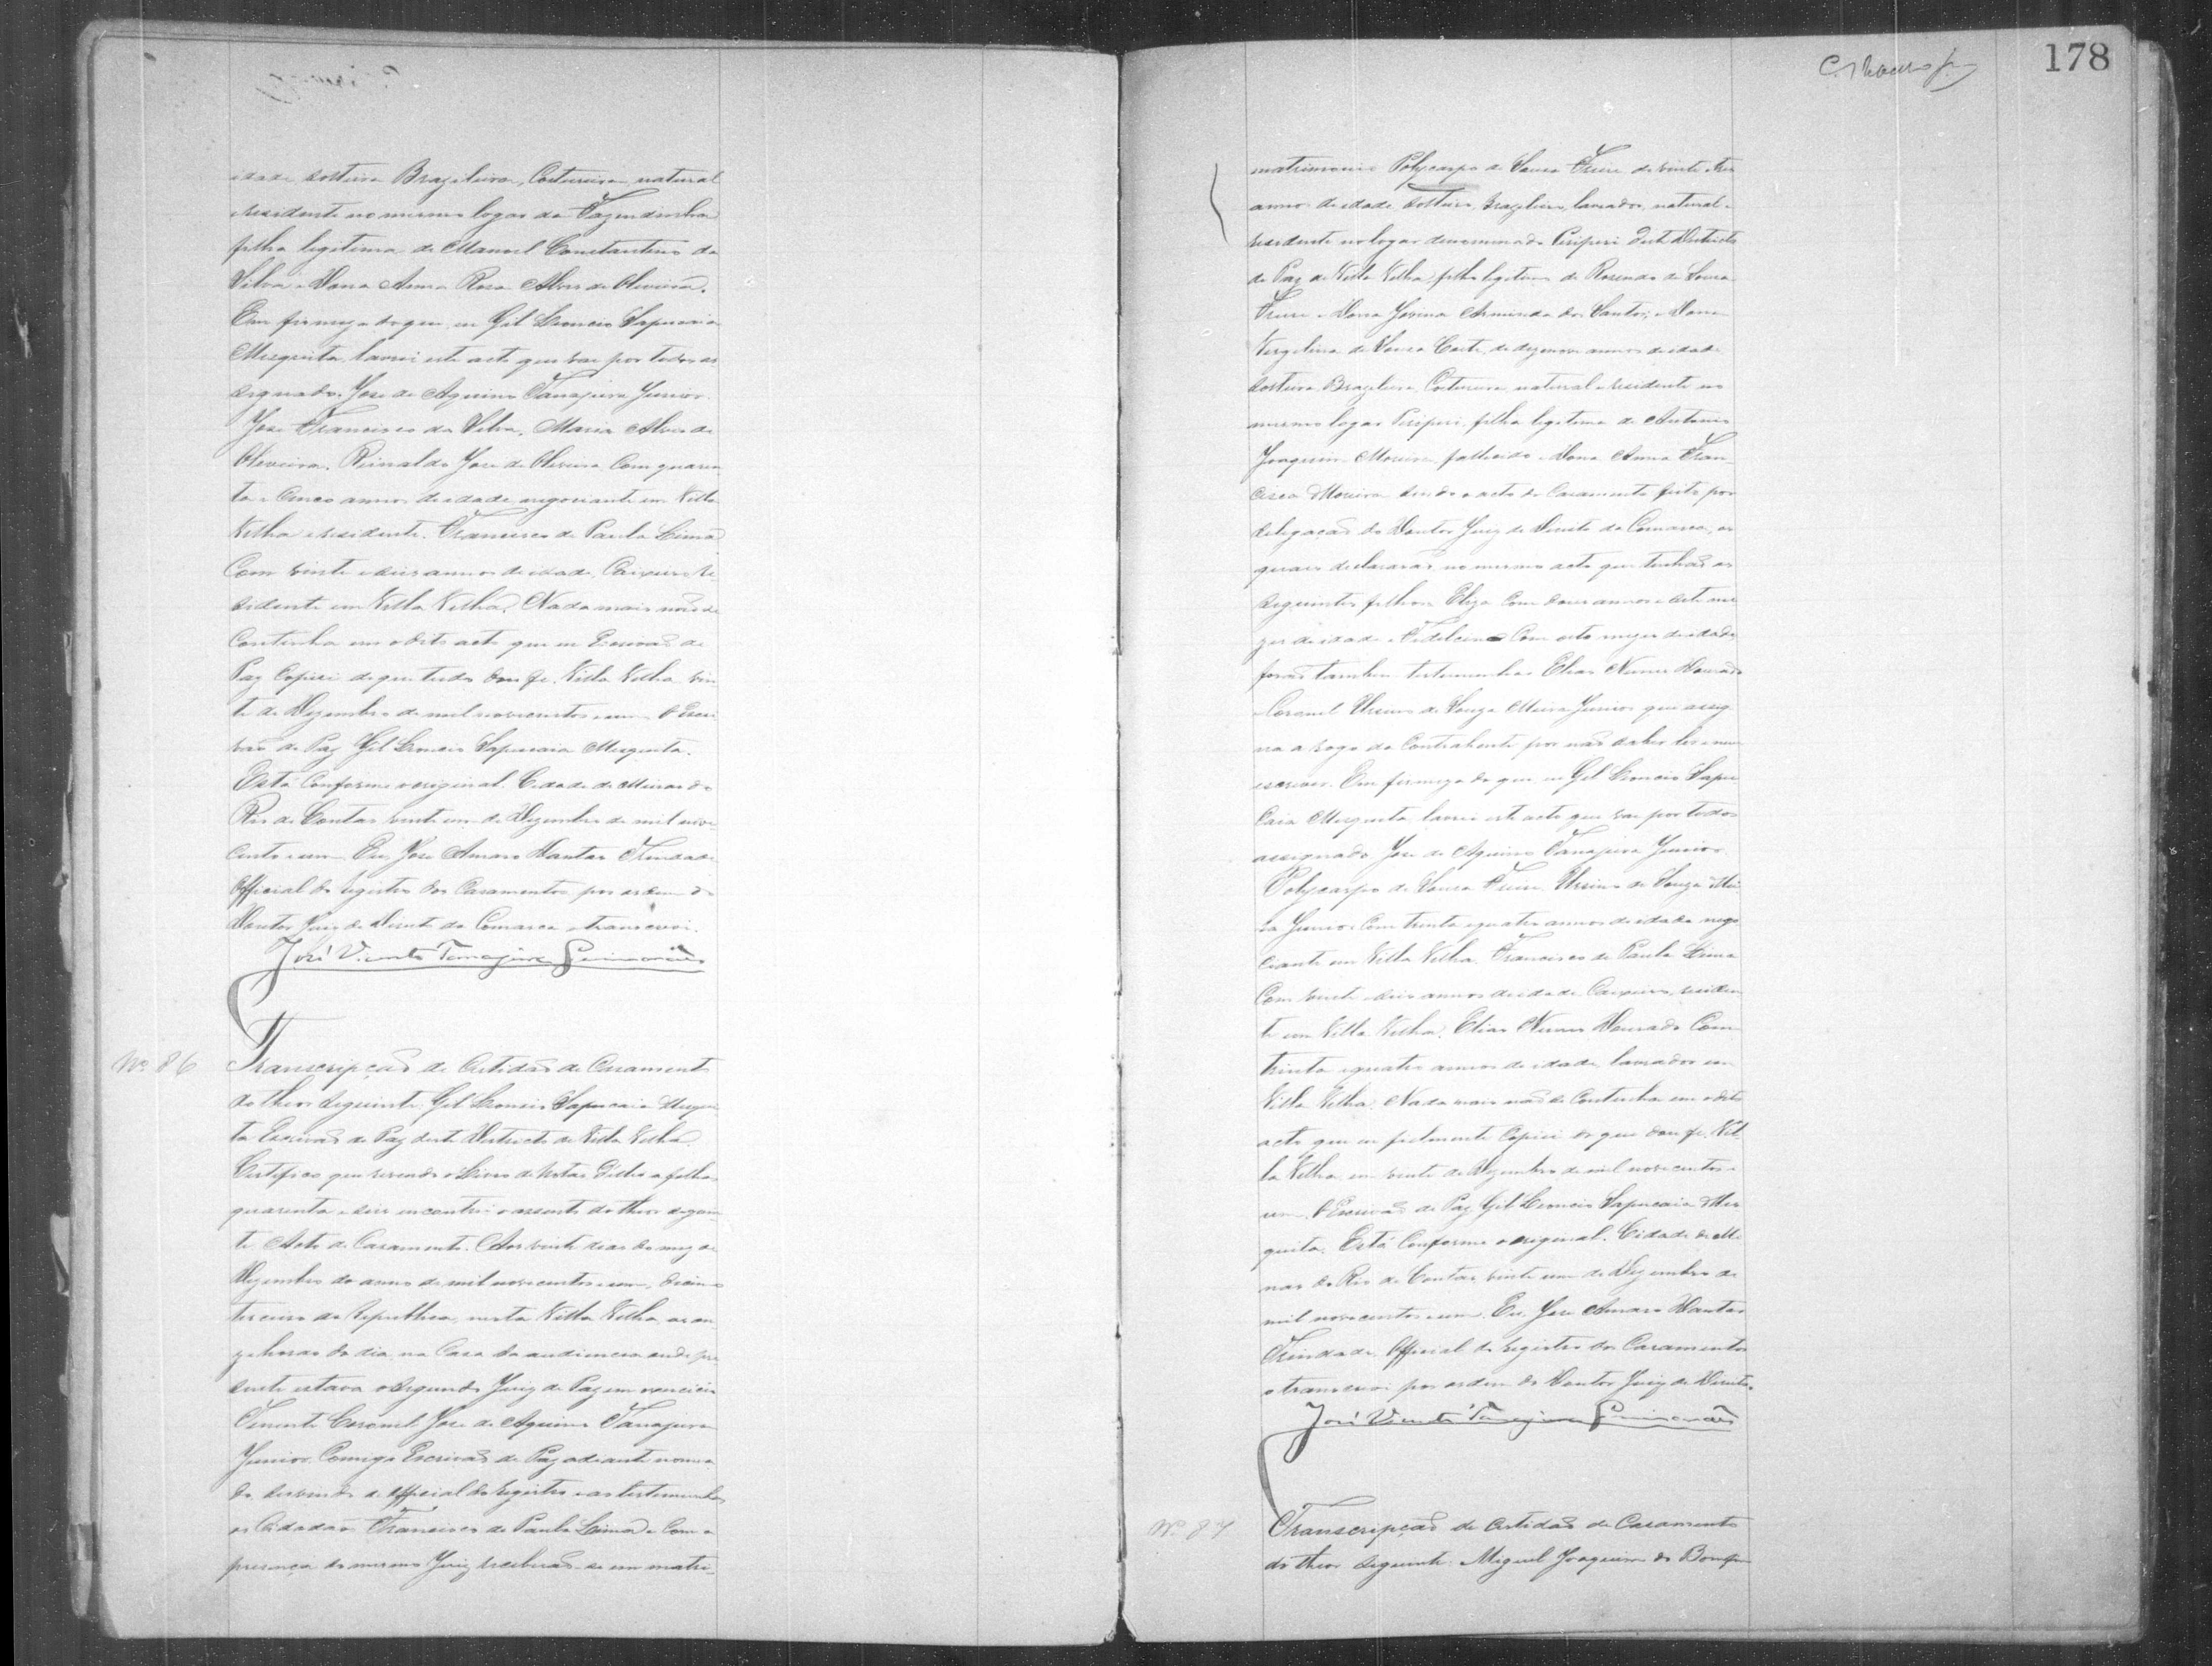 idade solteira Brazileira, Costureira natural
e residente no mesmo logar da Fazendinha
filha legitima de Manoel Constantino da
Silva e Dona Anna Rosa Alves de Oliveira.
Em firmeza do que eu Gil Leoncio Sapucaia
Mesquita, lavrei este acto que vae por todos as
signado. Jose de Aquino Tanajura Junior.
Jose Francisco da Silva. Maria Alves de
Oliveira. Reinaldo Jose de Oliveira Com quaren
ta e Cinco annos de idade negociante em Villa
Velha e residente. Francisco de Paula Lima
Com vinte e seis annos de idade, Caixeiro re
sidente em Villa Velha. Nada mais não se
Continha em o dito acto que eu Escrivão de
Paz Copiei de que tudo dou fe. Villa Velha vin
te de Dezembro de mil novecentos e um. O Escri
vão de Paz Gil Leoncio Sapucaia Mesquita.
Está Conforme o original. Cidade de Minas do
Rio de Contas vinte um de Dezembro de mil nove
centos e um. Eu, Jose Amaro Dantas Trindade
Official do registro dos Casamentos por ordem do
Doutor Juiz de Direito da Comarca o transcrevi.
José Vicente Tanajura Guimarães
Nº 86
Transcripção de Certidão de Casamento
do theor seguinte: Gil Leoncio Sapucaia Mesqui
ta Escrivão de Paz deste Districto de Villa Velha.
Certifico que revendo o Livro de Notas a folhas
quarenta e seis encontrei o assento do theor seguin
te Acto de Casamento. Aos vinte dias do mez de
Dezembro do anno de mil novecentos e um, decimo
terceiro da Republica, nesta Villa Velha, as on
ze horas do dia, na Casa da audiencia onde pre
sente estava o segundo Juiz de Paz em exercicio
Tenente Coronel Jose de Aquino Tanajura
Junior, Comigo Escrivão de Paz adiante nomea
do servindo de official do registro e as testemunhas
os Cidadãos Francisco de Paula Lima e Com a
presença do mesmo Juiz receberão-se em matri-
178
matrimonio Polycarpo de Sousa Freire de vinte e tres
annos de idade solteiro, Brazileiro, lavrador, natural e
residente no logar denominado Piripiri deste Districto
de Paz de Villa Velha, filho legitimo de Rosendo de Sousa
Freire e Dona Jovina Arminda dos Santos; e Dona
Vergilina de Sousa Coite, de dezenove annos de idade
solteira Brazileira, Costureira natural e residente no
mesmo logar Piripiri, filha legitima de Antonio
Joaquim Moreira, fallecido e Dona Anna Fran
cisca Moreira sendo o acto do Casamento feito por
delegação do Doutor Juiz de Direito da Comarca, os
quaes declararão no mesmo acto que tinhão os
seguintes filhos: Eliza Com dous annos e sete me
zes de idade e Fidelcino Com oito mezes de idade
forão tambem testemunhas Elias Nunes Dourado
e Coronel Ursino de Souza Meira Junior que assig
na a rogo da Contrahente por não saber ler e nem
escrever. Em firmeza do que eu Gil Leoncio Sapu
caia Mesquita lavrei este acto que vae por todos
assignado Jose de Aquino Tanajura Junior
Polycarpo de Sousa Freire. Ursino de Souza Mei
ra Junior Com trinta e quatro annos de idade nego
ciante em Villa Velha. Francisco de Paula Lima
Com vinte e seis annos de idade, Caixeiro, residen
te em Villa Velha. Elias Nunes Dourado Com
trinta e quatro annos de idade lavrador em
Villa Velha. Nada mais não se Continha em o dito
acto que eu fielmente Copiei do que dou fe. Vil
la Velha em vinte de Dezembro de mil novecentos e
um. O Escrivão de Paz Gil Leoncio Sapucaia Mes
quita. Está Conforme o original. Cidade de Mi
nas do Rio de Contas vinte um de Dezembro de
mil novecentos e um. Eu Jose Amaro Dantas
Trindade, Official do registro dos Casamentos
o transcrevi por ordem do Doutor Juiz de Direito.
José Vicente Tanajura Guimarães
Nº 87
Transcripção de Certidão de Casamento
do theor seguinte: Miguel Joaquim do Bomfim